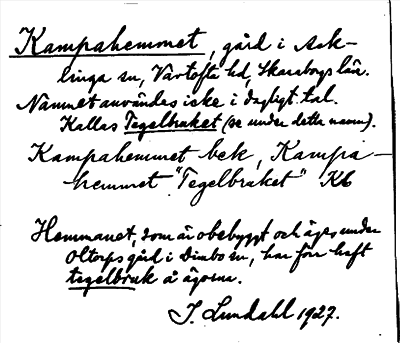 Kampahemmet, gård i Ask-
linga sn, Vartofta hd, Skaraborgs län.
Namnet användes icke i dagligt tal.
Kallas Tegelbruket (se under detta namn).
Kampahemmet bek, Kampa-
hemmet "Tegelbruket" Kb
Hemmanet, som är obebyggt och äges under
Oltorps gård i Dimbo sn, har förr haft
tegelbruk å ägorna.
J. Lundahl 1927.